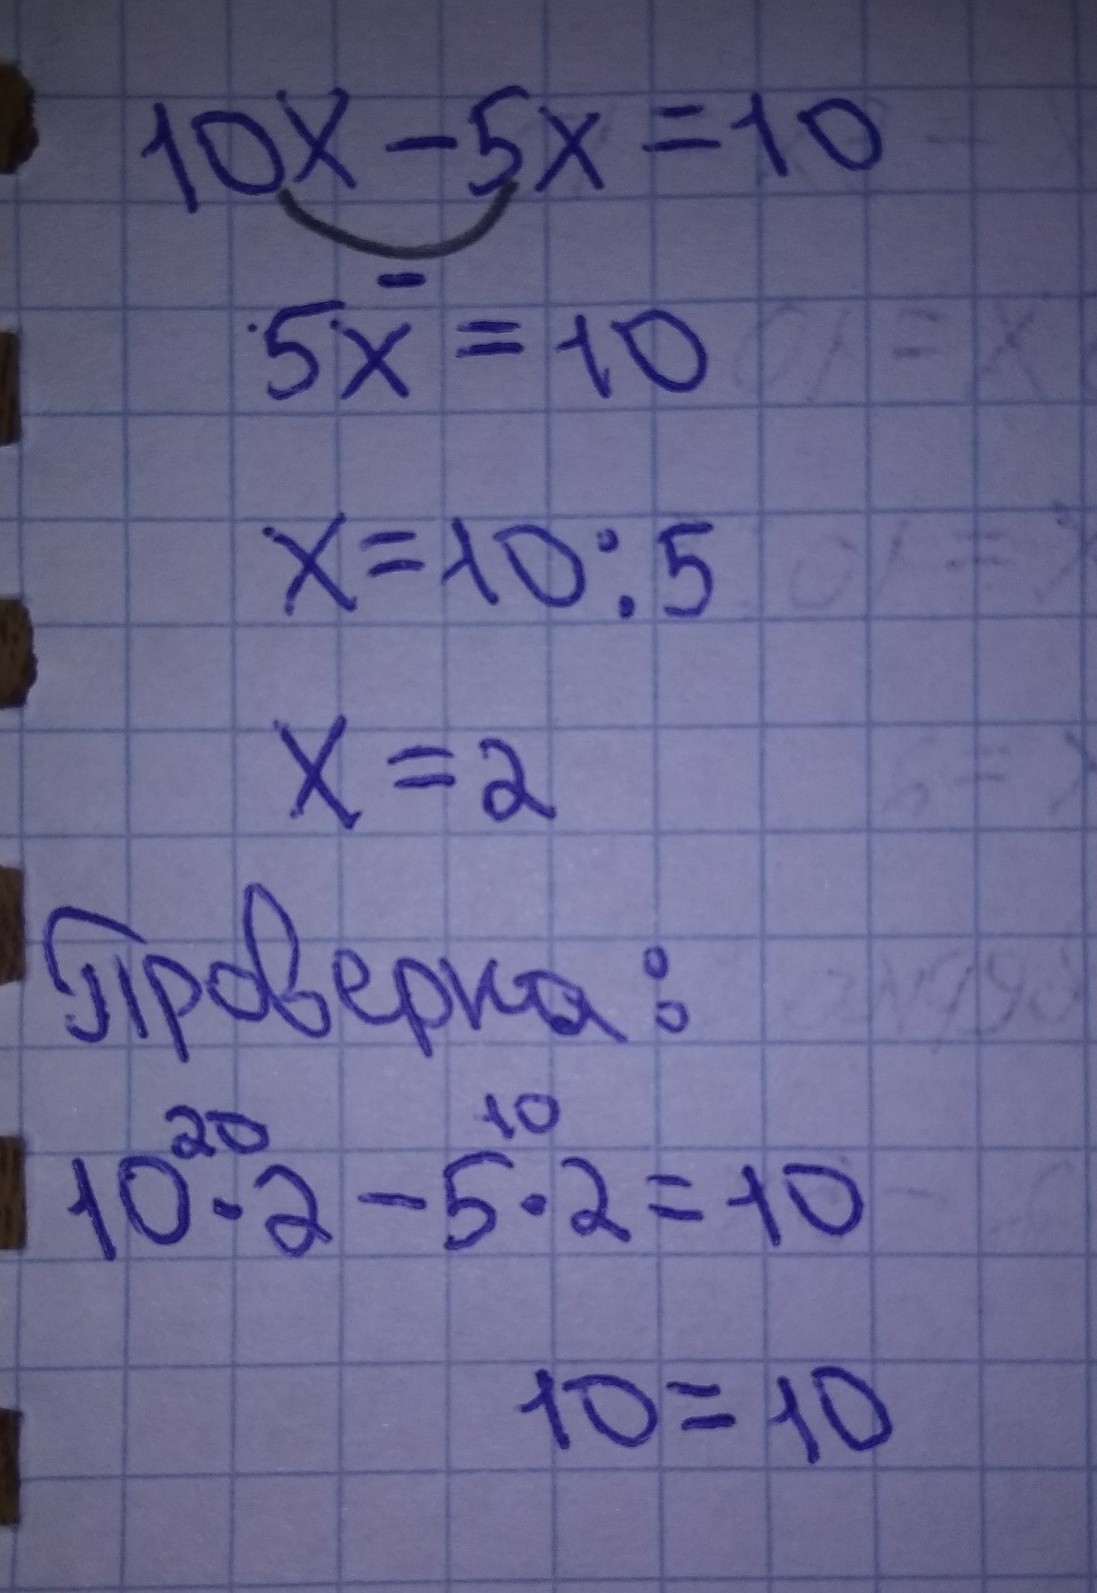 10x - 5x = 10
-
5x = 10
x = 10 : 5
x = 2
Проверка:
20 10
10 · 2 - 5 · 2 = 10
10 = 10